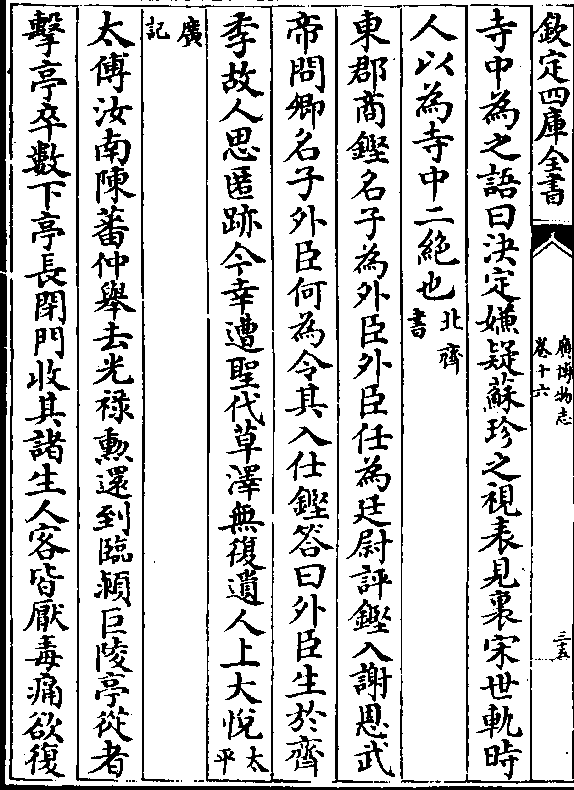 欽定四庫全書
廣博物志
卷十六
三五
寺中為之語曰決定嫌疑蘇珍之視表見裏宋世軌時
人以為寺中二絶也北齊書
東郡商鏗名子為外臣外臣任為廷尉評鏗入謝恩武
帝問卿名子外臣何為令其入仕鏗答曰外臣生於齊
季故人思匿跡今幸遭聖代草澤無復遺人上大悅太平
廣記
太傅汝南陳蕃仲舉去光祿勲還到臨潁巨陵亭從者
擊亭卒數下亭長閉門收其諸生人客皆厭毒痛欲復